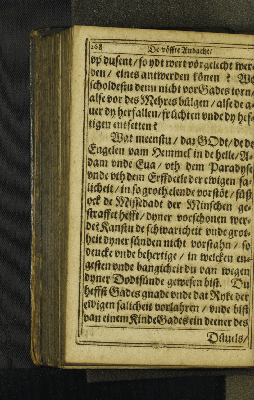 268 De vöffte Andacht/
vp dusent/ so ydt wert vörgelecht wer-
den/ eines antwerden können? We
scholdestu denn nicht vor Gades torn/
alse vor des Mehres bülgen/ alse de a-
uer dy herfallen/ früchten vnde dy hef-
tigen entsetten?
Wat meenstu/ dat GOdt/ de de
Engelen vam Hemmel in de helle/ A-
dam vnde Eua/ vth dem Paradyse
vnde vth dem Erffdeele der ewigen sa-
licheit/ in so groth elende vorstöt/ süß
ock de Missedadt der Minschen ge-
straffet hefft/ dyner vorschonen wer-
de? Kanstu de schwaricheit vnde grot-
heit dyner sünden nicht vorstahn/ so
dencke vnde behertige/ in welcken en-
gesten vnde bangicheit du van wegen
dyner Dodtsünde gewesen bist. Du
heffst Gades gnade vnde dat Ryke der
ewigen salicheit vorlahren/ vnde bist
van einem Kinde Gades ein deener des
Düuels/